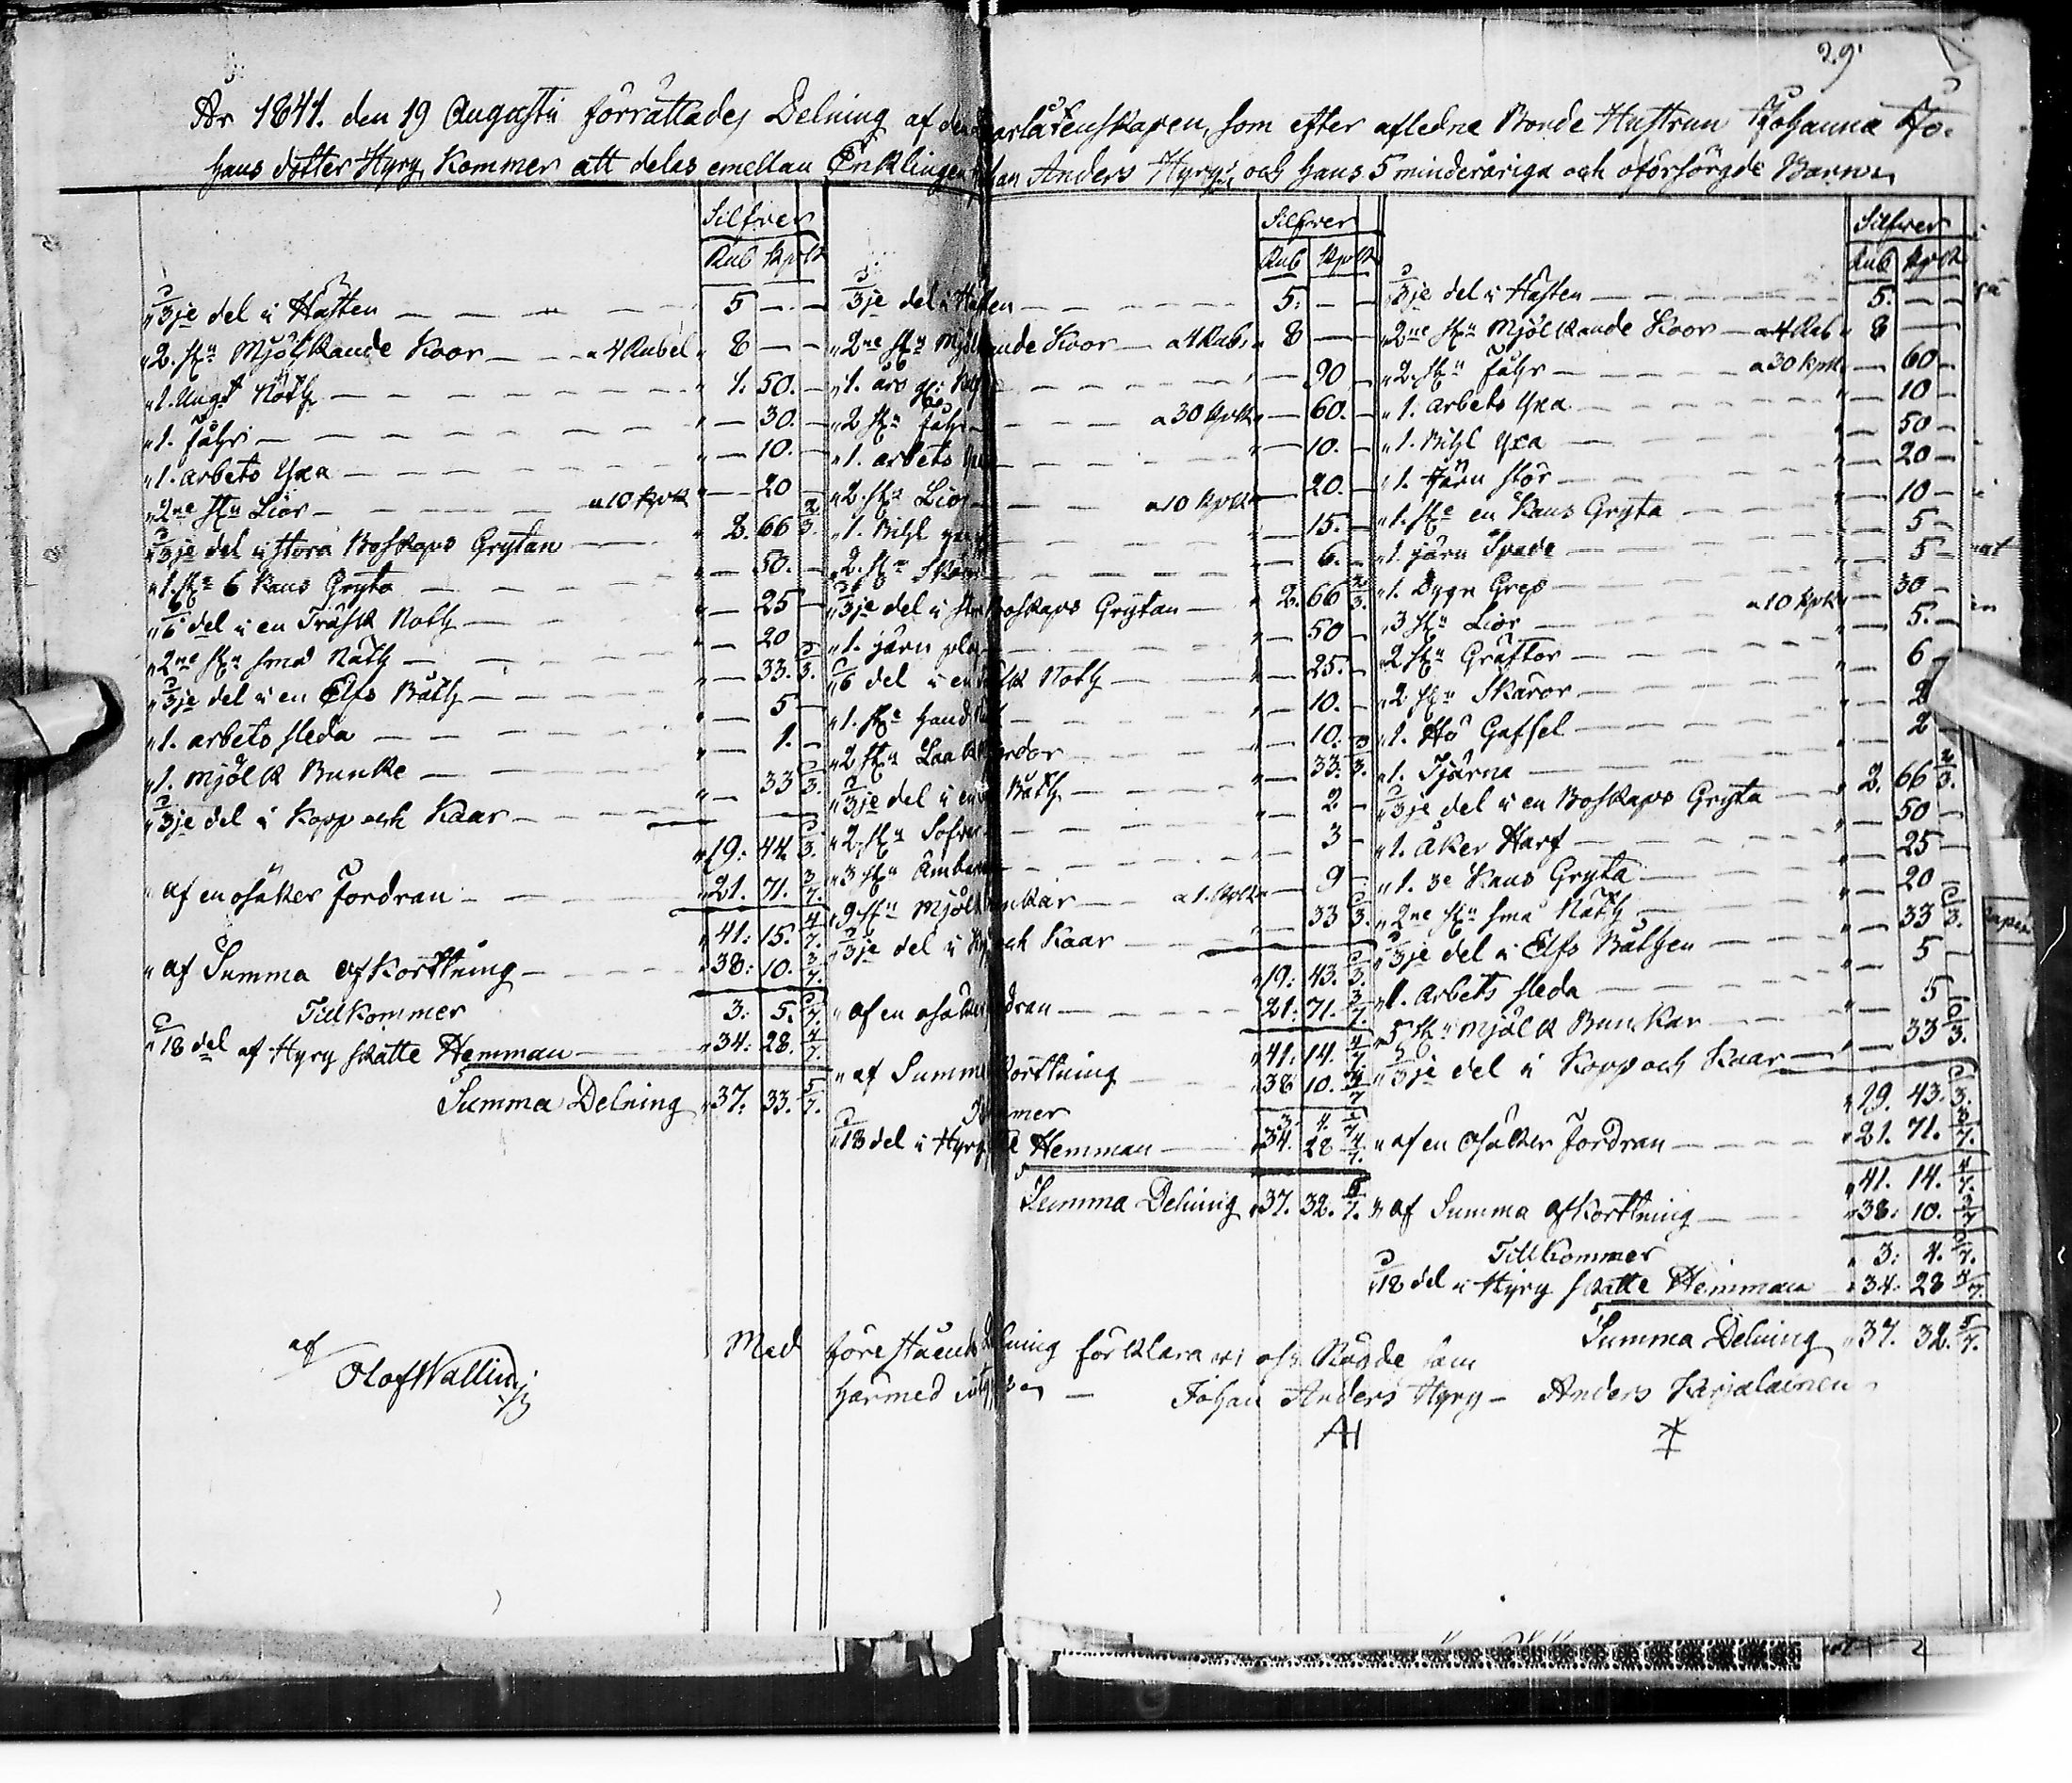 29.
År 1841. den 19 Augusti förrättades Delning af den qvarlåtenskapen, som efter afledne Bonde Hustrun Johanna Jo-
hans dotter Hyry, Kommer att delas emellan Enklingen Johan Anders Hyry, och hans 5 minderåriga och oförsörgde Barn
Silfver
Rub Kpk
1/3je del i Hästen 5 —
2. st:n Mjölkande Koor a 4 Rubel 8 —
1. Ungt Nöth 1. 50.
1. Fåhr — 30.
1. arbets Yxa — 10.
2ne st:n Lior a 10 Kpk — 20
1/3je del i stora Boskaps Grytan 2. 66 2/3.
1. st:e 6 Kans Gryta — 50.
1/6 del i en Träsk Noth — 25
2ne st:n små Näth — 20
1/3je del i en Elfs Båth — 33. 1/3.
1. arbets sleda — 5
1. mjölk Bunke — 1.
1/3je del i Kopp och Kaar — 33 1/3.
19: 44 1/3.
af en osäker Fordran 21. 71. 3/7.
41: 15. 4/7.
af Summa afkorttning 38: 10. 3/7.
Tillkommer 3: 5. 1/7.
1/18 del af Hyry skatte Hemman 34: 28. 4/7.
Summa Delning 37. 33. 5/7.
Silfver
Rub Kpk
1/3je del i Hästen 5: —
2ne st:n Mjölkande Koor a 4 Rub. 8 —
1. års — 90
2 st:n Fåhr a 30 Kpk — 60.
1. arbets Yxa — 10.
2. st:n Lior a 10 Kpk — 20.
1. Bihl yxa — 15.
2. st:n Skäror — 6.
1/3je del i Boskaps Grytan 2. 66 2/3.
1. järn — 50
1/6 del i en Träsk Noth — 25.
1. st:e hand — 10.
2 st:n — 10.
1/3je del i en Båth — 33. 1/3.
2. st:n — 2.
3 st:n Ämbaren — 3
9. st:n Mjölk Bunkar a 1. Kpk — 9
1/3je del i Kopp och Kaar — 33 1/3.
19: 43. 1/3.
af en osäker Fordran 21: 71. 3/7.
41: 14. 4/7
af Summa afkorttning 38 10. 3/7
Tillkommer 3. 4. 1/7
1/18 del i Hyry skatte Hemman 34. 28 4/7.
Summa Delning 37. 32. 5/7.
Silfver
Rub Kpk
1/3je del i Hästen 5: —
2ne st:n Mjölkande Koor a 4 Rub. 8 —
2. st:n Fåhr a 30 Kpk — 60
1. arbets Yxa — 10
1. Bihl Yxa — 50
1. Järn stör — 20
1. st:e en Kans Gryta — 10
1. järn Spade — 5
1. Dygn Grep — 5
3 st:n Lior a 10 Kpk — 30
2 st:n Gräftor — 5.
2 st:n Skäror — 6
1. Hö Gaffel — 2
1. Tjärna — 2
1/3je del i en Boskaps Gryta 2. 66 2/3.
1. Åker Harf — 50
1. 3e Kans Gryta — 25
2ne st:n små Näth — 20
1/3je del i Elfs Båthen — 33 1/3.
1. Arbets sleda — 5
5 st:n Mjölk Bunkar — 5
1/3je del i Kopp och Kaar — 33 1/3.
19. 43. 1/3.
af en osäker Fordran 21. 71. 3/7.
41. 14. 4/7.
af Summa afkorttning 38: 10. 3/7
Tillkommer 3: 4. 1/7.
1/18 del i Hyry skatte Hemman 34: 28 4/7.
Summa Delning 37. 32. 5/7.
Med förestående Delning förklara vi oss Nögde som
härmed
Johan Anders Hyry — Anders Karjalainen
af
Olof Wallin